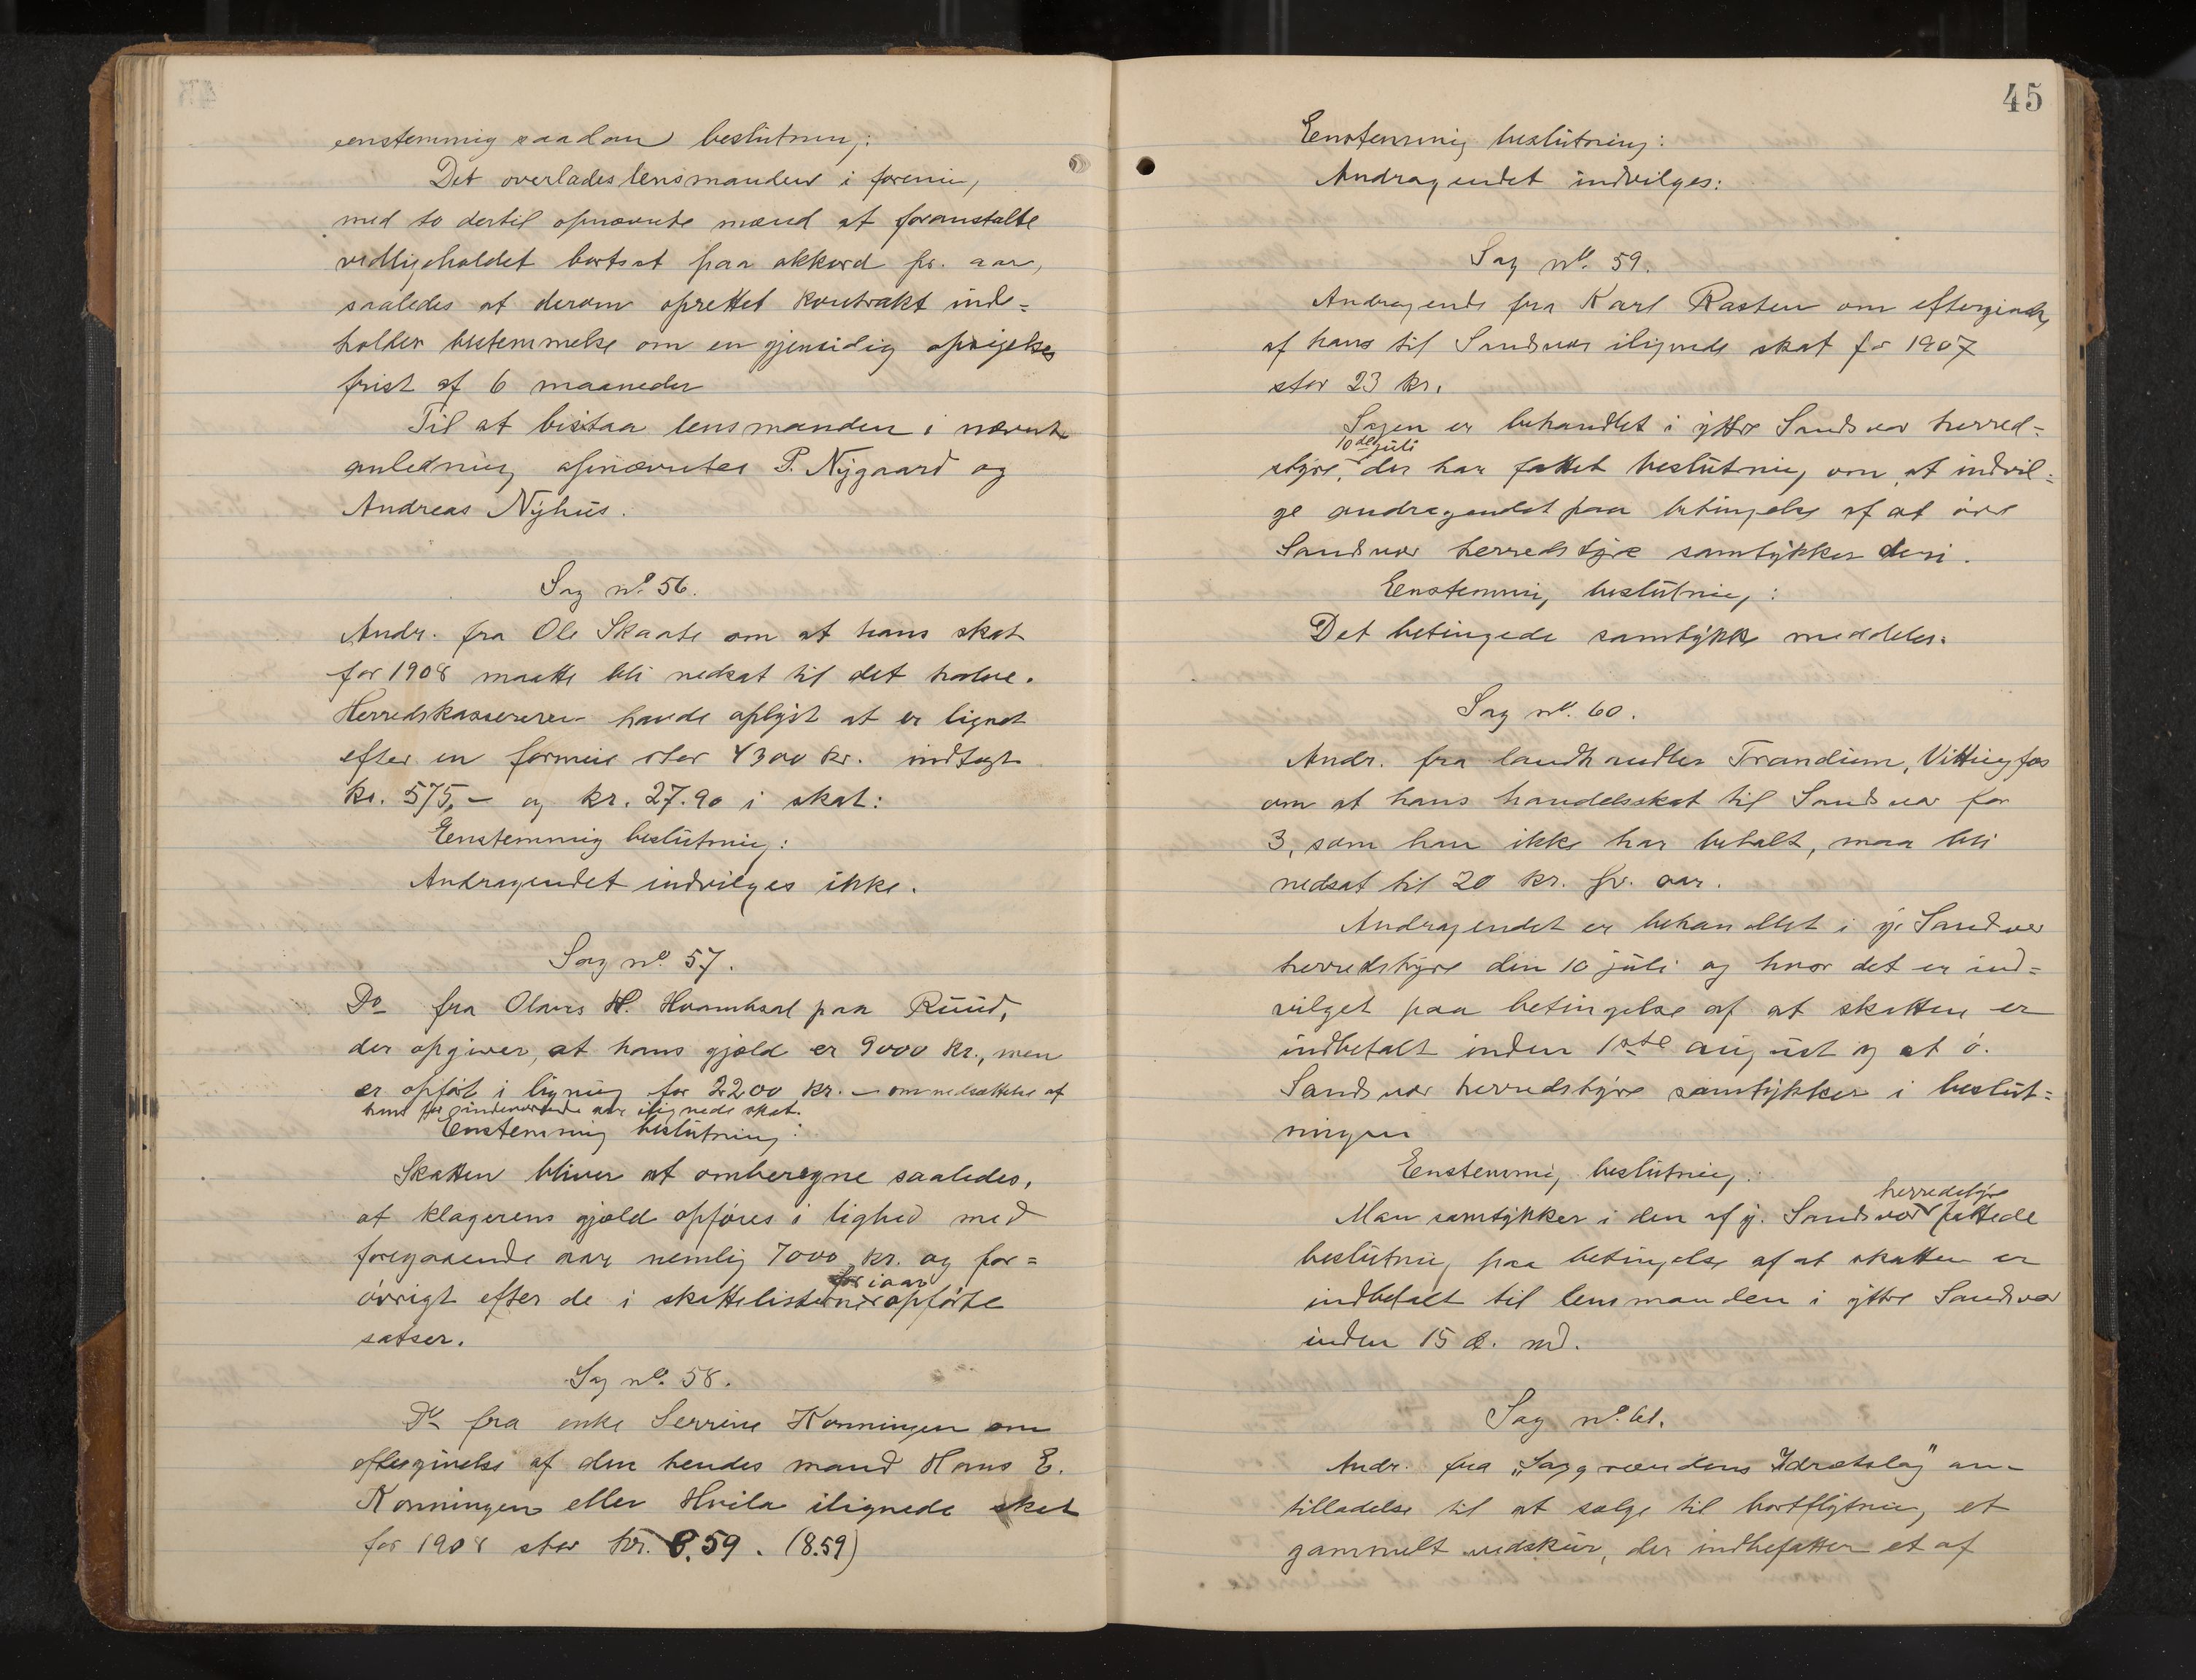 eenstemmig saadan beslutning:
Det overlades lensmanden i forening
med to dertil opnævnte mænd at foranstalte
vedligeholdet bortsat paa akkord pr. aar,
saaledes at derom oprettet kontrakt inde=
holder bestemmelse om en gjensidig opsigelses
frist af 6 maaneder
Til at bistaa lensmanden i nævnte
anledning opnævntes P. Nygaard og
Andreas Nyhus.
Sag no. 56.
Andr. fra Ole Skaate om at hans skat
for 1908 maatte bli nedsat til det halve.
Herredskassereren havde oplyst at er lignet
efter en formue stor 4300 kr. indtægt
kr. 575,- og kr. 27.90 i skat:
Eenstemmig beslutning:
Andragendet indvilges ikke.
Sag no. 57.
Do fra Olaves H. Hvamhsal paa Ruud,
der opgiver, at hans gjæld er 9000 kr., men
er opført i ligning for 2200 kr. - om nedsættelse af
hans for indeværende aar ilignede skat.
Eenstemmig beslutning:
Skatten bliver at omberegne saaledes,
at klagerens gjæld opføres i lighed med
foregaaende aar nemlig 7000 kr. og for=
for iaar
øvrigt efter de i skattelisterne opførte
satser.
Sag no. 58.
Do fra enke Serrine Konningen om
eftergivelse af den hendes mand Hans E.
Konningen eller Hvila ilignede skat
for 1908 stor kr. 8.59. (8.59)
45
Eenstemmig beslutning:
Andragendet indvilges:
Sag no. 59.
Andragende fra Karl Rasten om eftergivelse
af hans til Sandsvær ilignede skat for 1907
stor 23 kr.
Sagen er behandlet i yttre Sandsvær herred=
10de juli
styre, der har fattet beslutning om at indvil=
ge andragendet paa betingelse af at øvre
Sandsvær herredstyre samtykker deri.
Eenstemmig beslutning:
Det betingede samtykke meddeles.
Sag no. 60.
Andr. fra landhandler Trandum, Vittingfos
om at hans handelsskat til Sandsvær for
3, som han ikke har betalt, maa bli
nedsat til 20 kr. pr. aar.
Andragendet er behandlet i y. Sandsvær
herredstyre den 10 juli og hvor det er ind=
vilget paa betingelse af at skatten er
indbetalt inden 1ste august og at ø.
Sandsvær herredstyre samtykker i beslut=
ningen
Eenstemmig beslutning:
herredstyre
Man samtykker i den af y. Sandsvær fattede
beslutning paa betingelse af at skatten er
indbetalt til lensmanden i yttre Sandsvær
inden 15 d. md.
Sag no. 61.
Andr. fra "Laagrændens Idrætslag" om
tilladelse til at sælge til bortflytning et
gammelt vedskur, der indbefatter et af